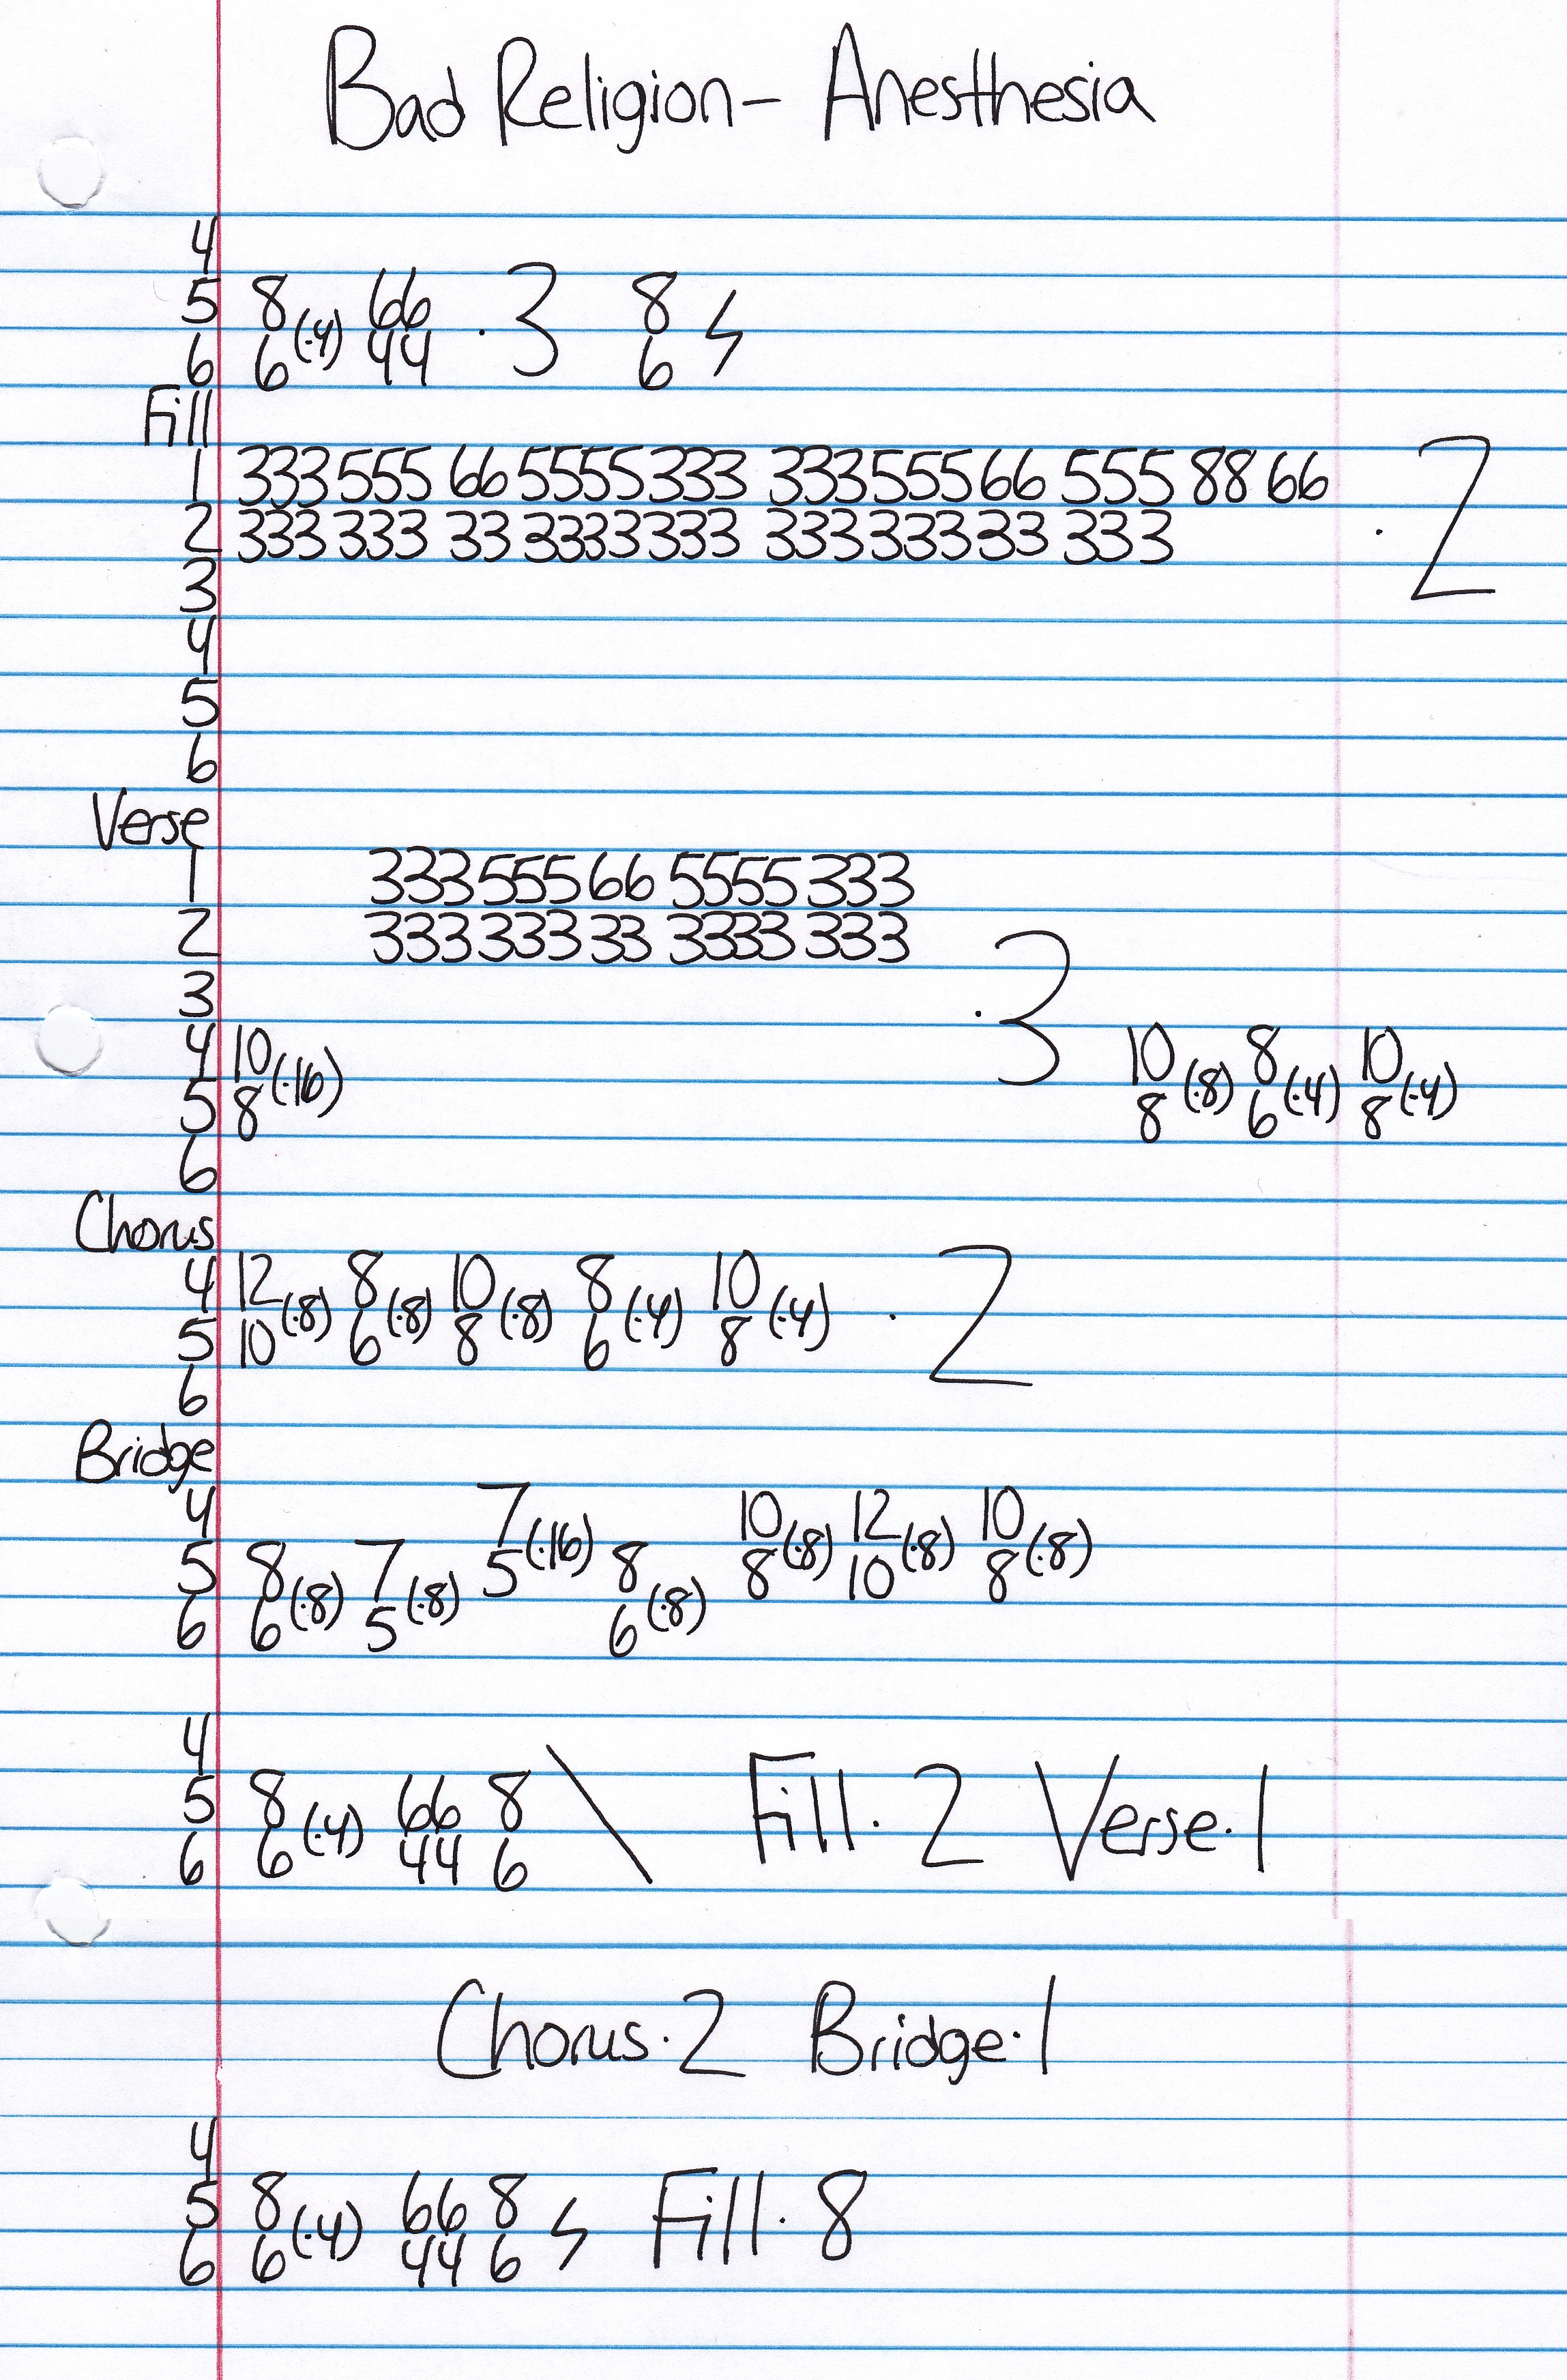 Bad Religion- Anesthesia
4
5 8 66 8
(·4) ·3 ϟ
6 6 44 6
Fill
1 333 555 66 5555 333 333 555 66 555 88 66
2 333 333 33 3333 333 333 333 33 333 ·2
3
4
5
6
Verse
1 333 555 66 5555 333
2 333 333 33 3333 333
3 ·3
4 10 10 8 10
(·16) (·8) (·4) (·4)
5 8 8 6 8
6
Chorus
4 12 8 10 8 10
(·8) (·8) (·8) (·4) (·4) ·2
5 10 6 8 6 8
6
Bridge
4 7 10 12 10
(·16) (·8) (·8) (·8)
5 8 7 5 8 8 10 8
(·8) (·8) (·8)
6 6 5 6
4
5 8 66 8
(·4) \ Fill·2 Verse·1
6 6 44 6
Chorus·2 Bridge·1
4
5 8 66 8
(·4) ϟ Fill·8
6 6 44 6